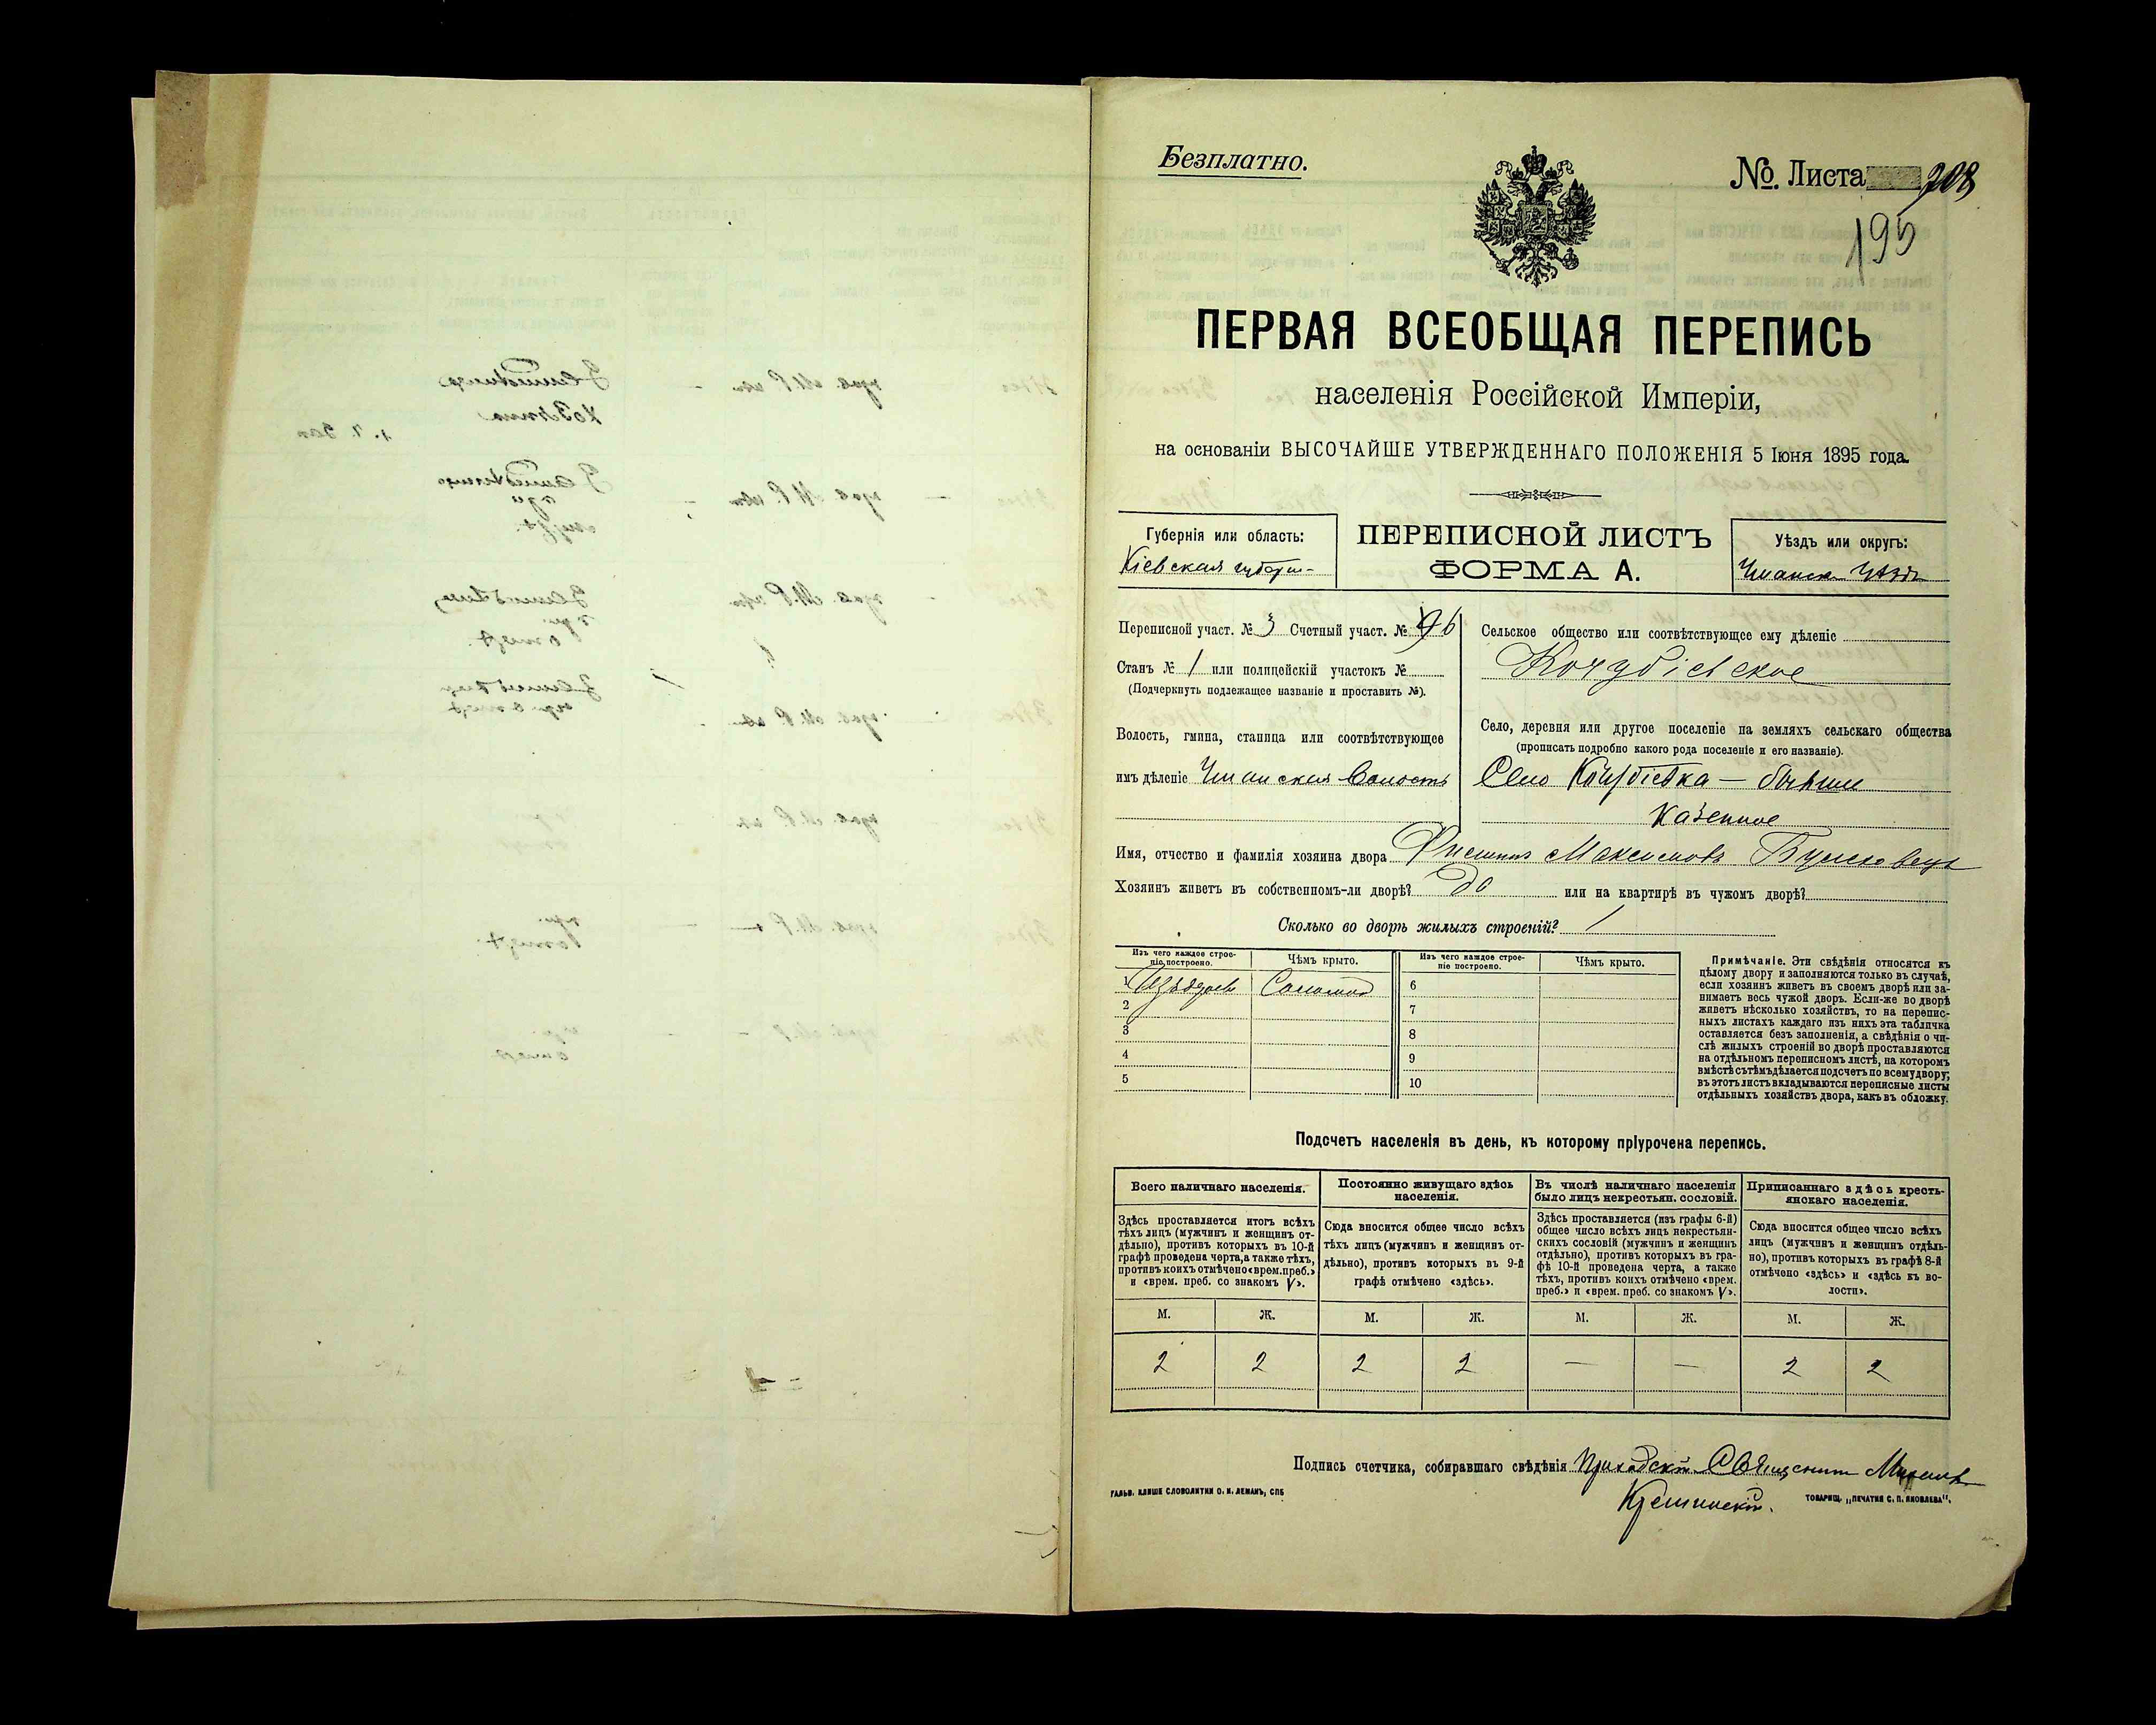 Безплатно.
№. Листа 208
195
ПЕРВАЯ ВСЕОБЩАЯ ПЕРЕПИСЬ
населенія Россійской Имперіи,
на основаніи ВЫСОЧАЙШЕ УТВЕРЖДЕННАГО ПОЛОЖЕНІЯ 5 Іюня 1895 года.
Губернія или область:
Кіевская губерн-
ПЕРЕПИСНОЙ ЛИСТЪ
ФОРМА А.
Уѣздъ или округъ:
Уманск уѣздъ
Переписной участ. № 3 Счетный участ. №
Станъ № 1 или полицейскій участокъ №
(Подчеркнуть подлежащее названіе и проставить №).
Волость, гмина, станица или соотвѣтствующее
имъ дѣленіе Уманская Волость
Сельское общество или соотвѣтствующее ему дѣленіе
Кочубіевское
Село, деревня или другое поселеніе на земляхъ сельскаго общества
(прописать подробно какого рода поселеніе и его названіе).
Село Кочубіевка — бывшее
казенное
Имя, отчество и фамилія хозяина двора Филиппъ Максимовъ
Хозяинъ живетъ въ собственномъ-ли дворѣ? да или на квартирѣ въ чужомъ дворѣ?
Сколько во дворѣ жилыхъ строеній? 1
Изъ чего каждое строе-
ніе построено.
Чѣмъ крыто.
Изъ чего каждое строе-
ніе построено.
Чѣмъ крыто.
1 Изъ дерев Соломой
2
3
4
5
6
7
8
9
10
Примѣчаніе. Эти свѣдѣнія относятся къ
цѣлому двору и заполняются только въ случаѣ,
если хозяинъ живетъ въ своемъ дворѣ или за-
нимаетъ весь чужой дворъ. Если-же во дворѣ
живетъ нѣсколько хозяйствъ, то на перепис-
ныхъ листахъ каждаго изъ нихъ эта табличка
оставляется безъ заполненія, а свѣдѣнія о чи-
слѣ жилыхъ строеній во дворѣ проставляются
на отдѣльномъ переписномъ листѣ, на которомъ
вмѣстѣ съ тѣмъ дѣлается подсчетъ по всему двору;
въ этотъ листъ вкладываются переписные листы
отдѣльныхъ хозяйствъ двора, какъ въ обложку.
Подсчетъ населенія въ день, къ которому пріурочена перепись.
Всего наличнаго населенія.
Здѣсь проставляется итогъ всѣхъ
тѣхъ лицъ (мужчинъ и женщинъ от-
дѣльно), противъ которыхъ въ 10-й
графѣ проведена черта, а также тѣхъ,
противъ коихъ отмѣчено «врем. преб.»
и «врем. преб. со знакомъ V».
Постоянно живущаго здѣсь
населенія.
Сюда вносится общее число всѣхъ
тѣхъ лицъ (мужчинъ и женщинъ от-
дѣльно), противъ которыхъ въ 9-й
графѣ отмѣчено «здѣсь».
Въ числѣ наличнаго населенія
было лицъ некрестьян. сословій.
Здѣсь проставляется (изъ графы 6-й)
общее число всѣхъ лицъ некрестьян-
скихъ сословій (мужчинъ и женщинъ
отдѣльно), противъ которыхъ въ гра-
фѣ 10-й проведена черта, а также
тѣхъ, противъ коихъ отмѣчено «врем.
преб.» и «врем. преб. со знакомъ V».
Приписаннаго здѣсь кресть-
янскаго населенія.
Сюда вносится общее число всѣхъ
лицъ (мужчинъ и женщинъ отдѣль-
но), противъ которыхъ въ графѣ 8-й
отмѣчено «здѣсь» и «здѣсь къ во-
лости».
М. Ж. М. Ж. М. Ж. М. Ж.
2 2 2 2 — — 2 2
Подпись счетчика, собиравшаго свѣдѣнія Приходскій Священникъ
ГАЛЬВ. КЛИШЕ СЛОВОЛИТНИ О. И. ЛЕМАНЪ, СПБ
ТОВАРИЩ. „ПЕЧАТНИ С. П. ЯКОВЛЕВА".